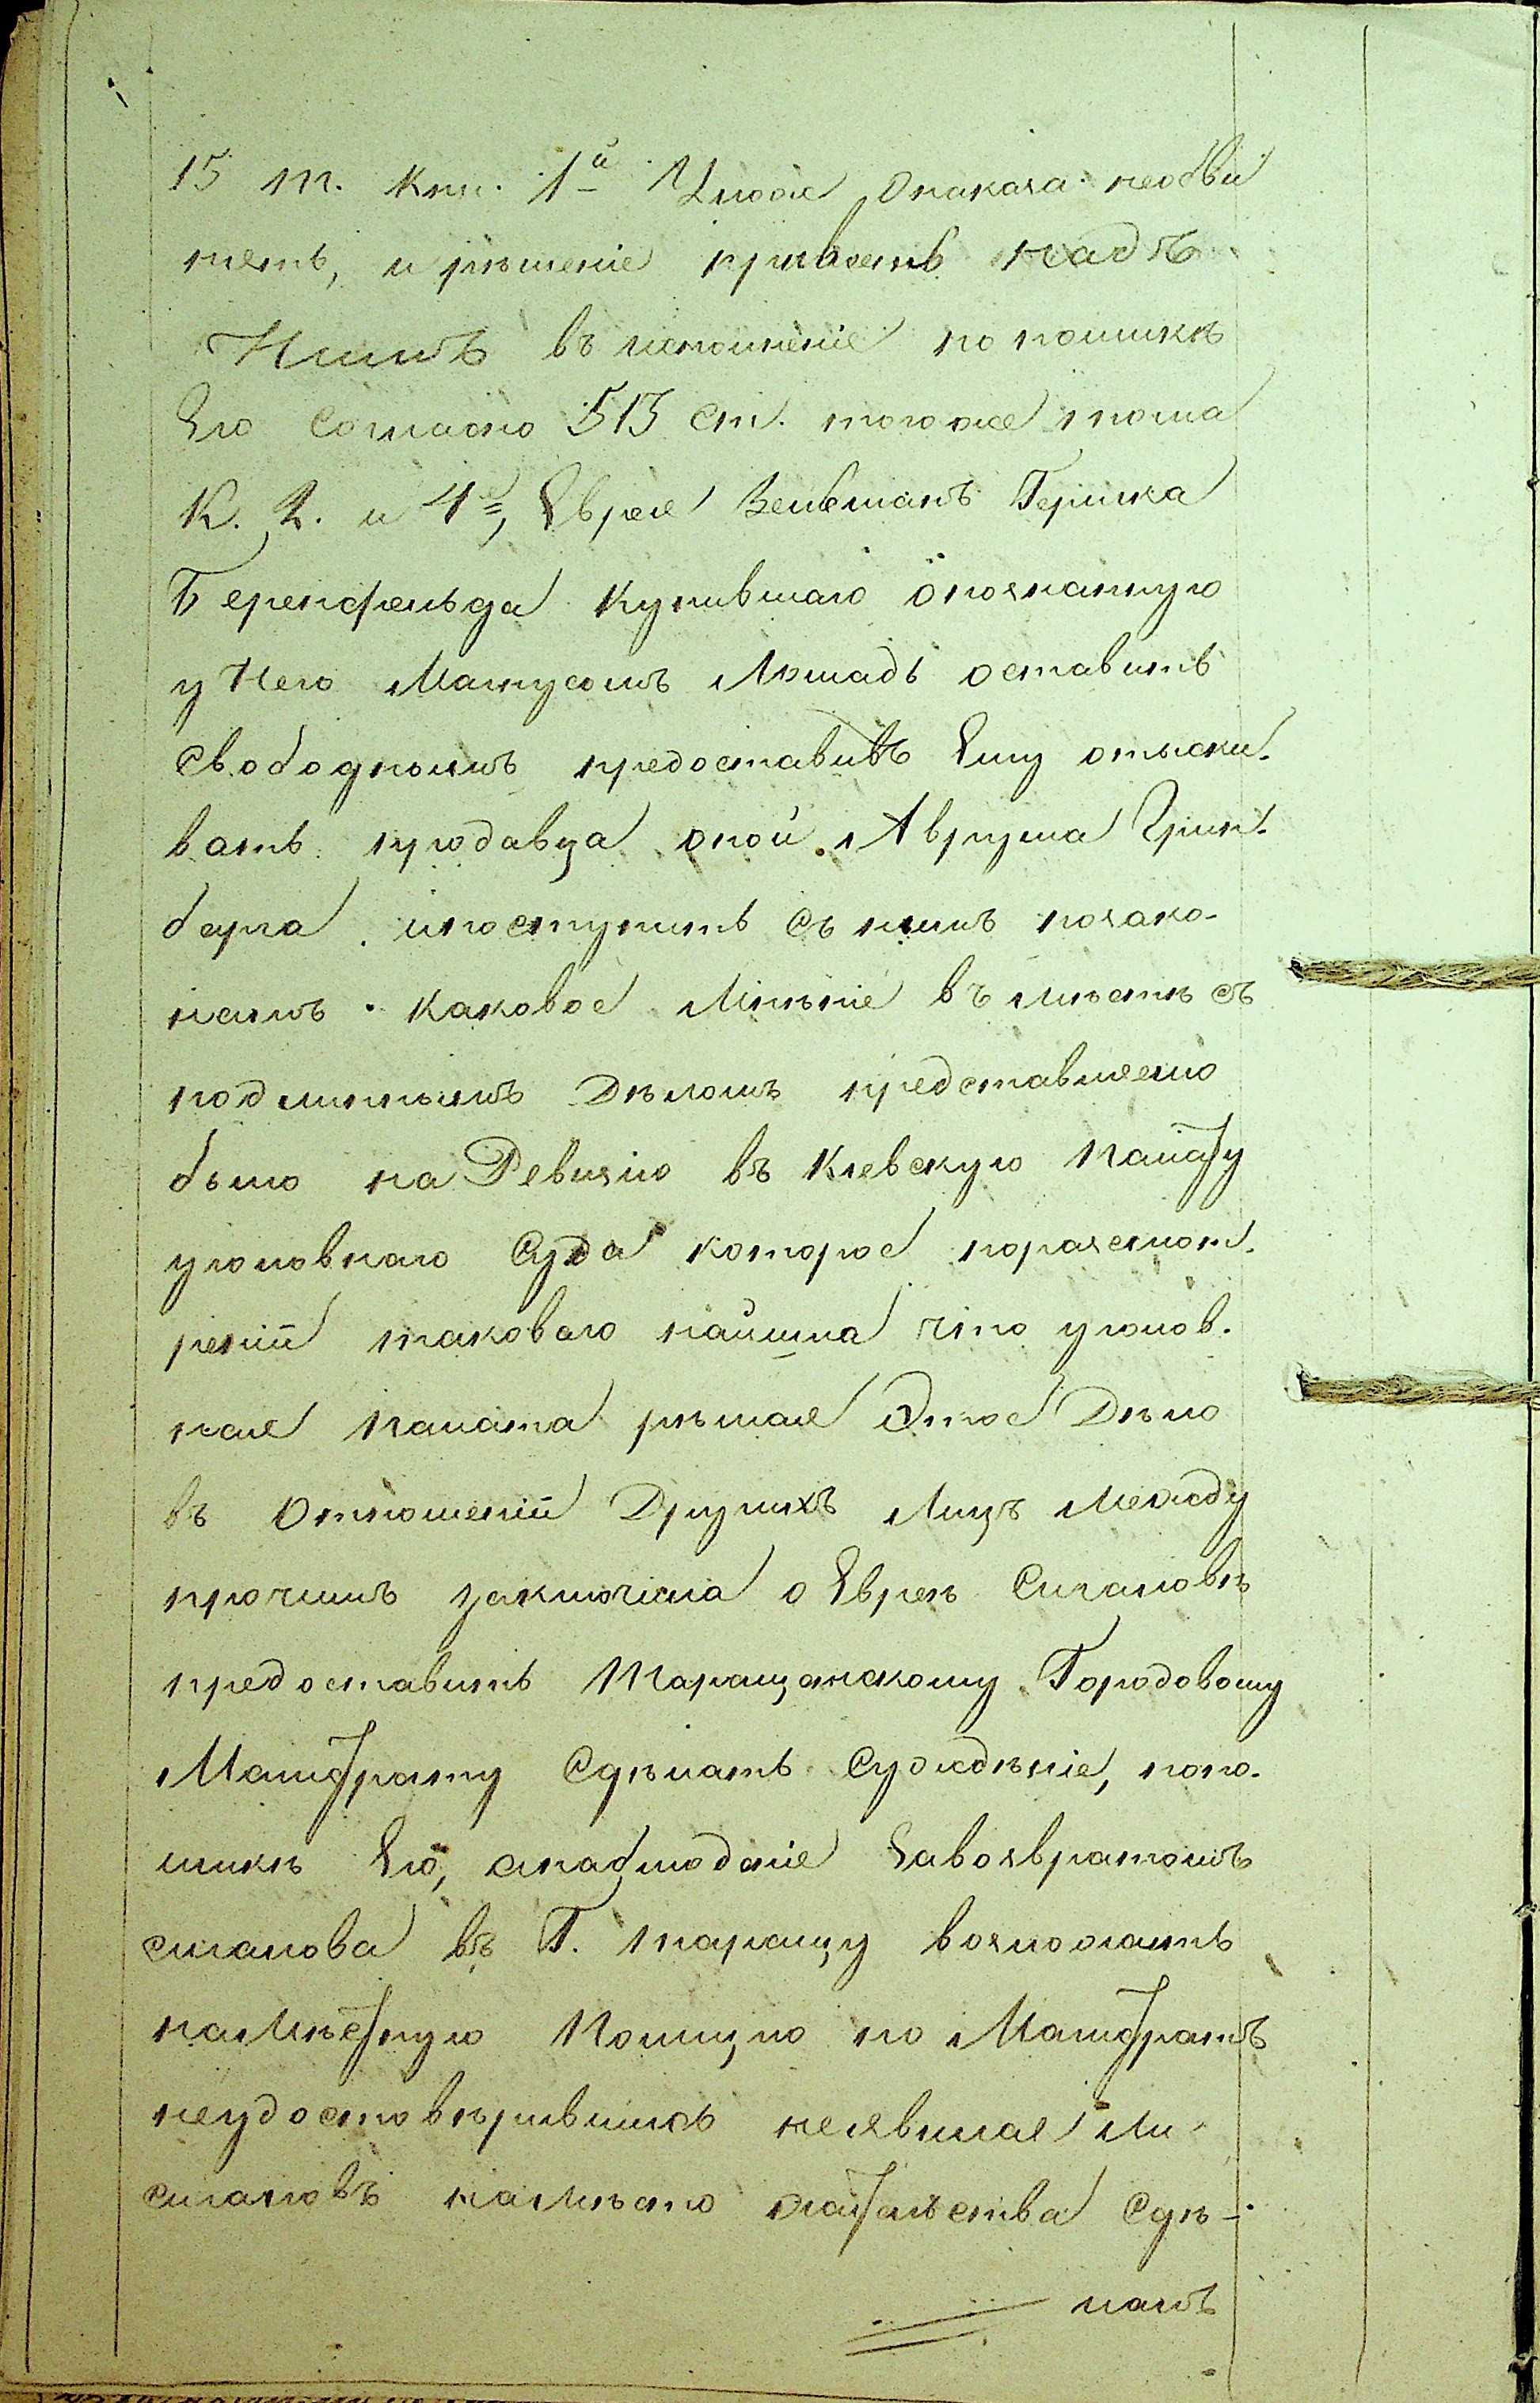 15 т. кни. 1й Уложе Онаказа: необви
нять, и рѣшеніе привесть надъ
Нимъ въ исполненіе по поимкѣ
Его Согласно 513 ст. тогоже тома
К. 2. и 4е, Еврея Зельманъ Гершка
Беренфельда купившаго опознанную
у Него Матусомъ Лошадь оставить
Свободнымъ предоставивъ Ему отыски-
вать продавца оной Аврума Грин-
берга ипоступить съ нимъ позако-
намъ. каковое Мнѣніе въ мѣстѣ съ
подлиннымъ Дѣломъ представленно
было на Ревизію въ Кіевскую Палату
уголовнаго Суда которое поразсмот-
реніи таковаго нашла что уголов-
ная Палата рѣшая Этое Дѣло
въ Отношеніи Другихъ Лицъ Между
прочимъ заключила о Евреѣ Сигаловѣ
предоставить Таращанскому Городовому
Магистрату Сдѣлать Сужденіе, попо-
имкѣ Его, анаблюденіе Завозвратомъ
сигалова въ Г. таращу возложить
наМѣстную Полицію но Магистратъ
неудостовѣрившись неявился ли
сигаловъ намѣсто жительства Сдѣ-
лалъ